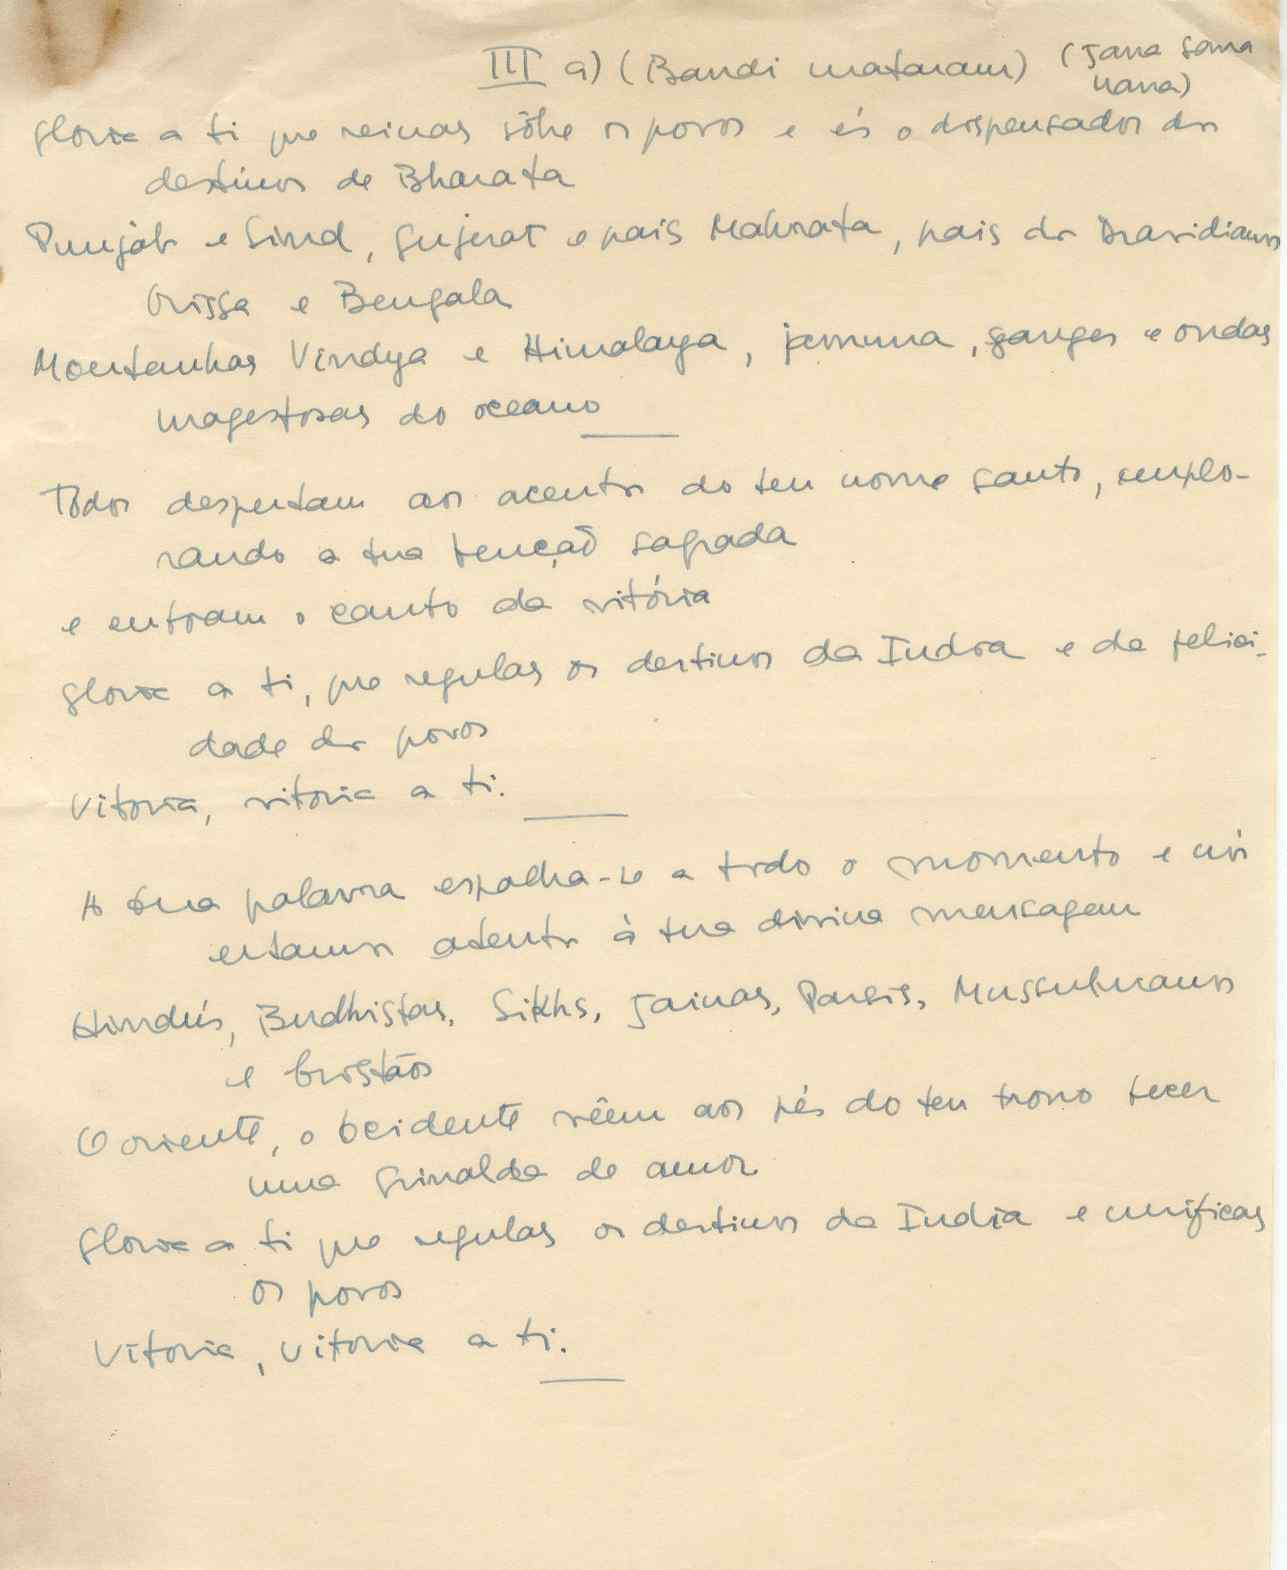 III a) (Bandi mataram) (Jana Gana
nana)
Gloria a ti que reinas sôbre os povos e és o dispensador dos
destinos de Bharata
Punjab e Sind, Gujerat e país Mahrata, pais dos Dravidianos
Orissa e Bengala
Montanhas Vindya e Himalaya, jamuna, ganges e ondas
magestosas do oceano
Todos despertam aos acentos do teu nome santo, implo-
rando a tua benção sagrada
e entoam o canto da vitória
Gloria a ti, que regulas os destinos da India e da felici-
dade dos povos
Vitoria, vitoria a ti.
A tua palavra espalha-se a todo o momento e nós
estamos atentos à tua divina mensagem
Hindús, Budhistas, Sikhs, Jainas, Parsis, Mussulmanos
e Cristãos
O oriente, o Ocidente vêem aos pés do teu trono tecer
uma Grinalda de amor
Gloria a ti que regulas os destinos da India e unificas
os povos
Vitoria, vitoria a ti.